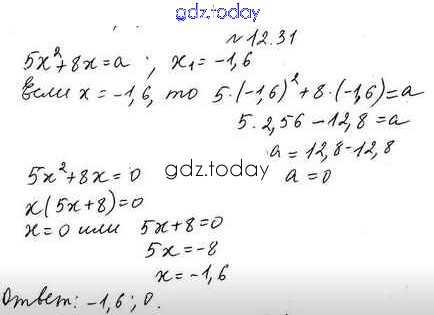 gdz.today
№12.31
5x²+8x=a ; x₁=-1,6
Если x=-1,6, то 5·(-1,6)²+8·(-1,6)=a
5·2,56-12,8=a
a=12,8-12,8
a=0
5x²+8x=0
gdz.today
x(5x+8)=0
x=0 или 5x+8=0
5x=-8
x=-1,6
Ответ: -1,6; 0.